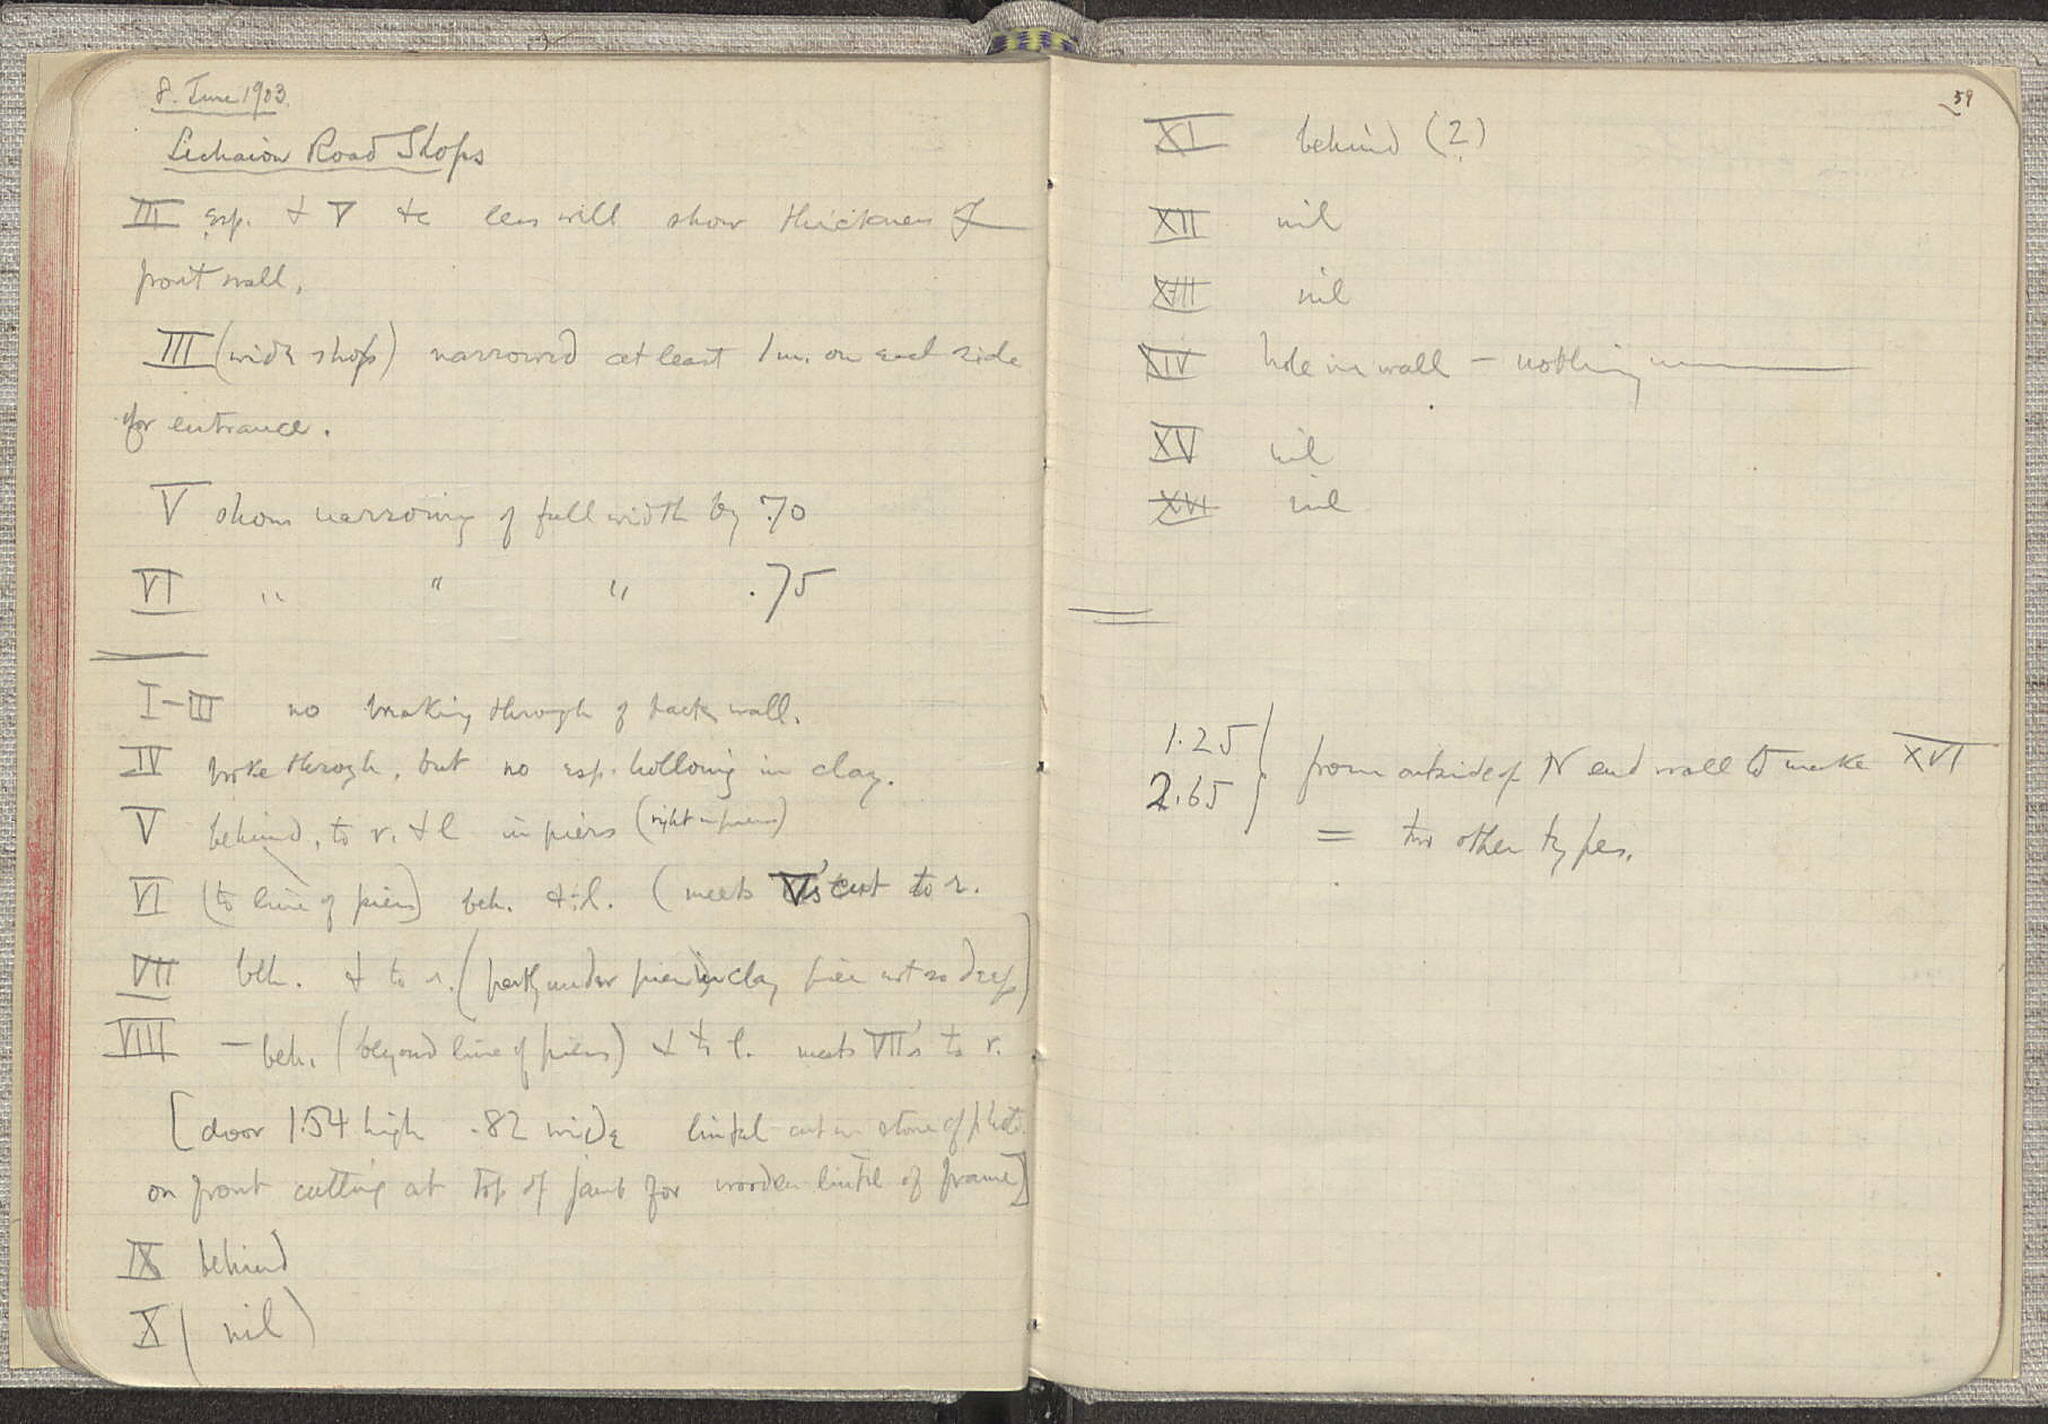 8. June 1903.
Lechaion Road Shops
III esp. & V &c less will show thickness of
front wall.
III (wide shop) narrowed at least 1 m. on each side
for entrance.
V shows narrowing of full width by .70
VI " " " .75
I–III no breaking through of back wall.
IV broke through, but no esp. hollowing in clay.
V behind, to r. & l in piers (right in piers)
VI (to line of piers) beh. & l. (meets V's cut to r.
VII beh. & to r. (partly under pier in clay pier not so deep)
VIII – beh. (beyond line of piers) & to l. meets VII's to r.
[door 1.54 high .82 wide lintel cut in stone of
on front cutting at top of jamb for wooden lintel of frame]
IX behind
X (nil)
59
XI behind (2)
XII nil
XIII nil
XIV hole in wall – nothing
XV nil
XVI nil
1.25
2.65 } from outside of N end wall to make XVI
= two other types.